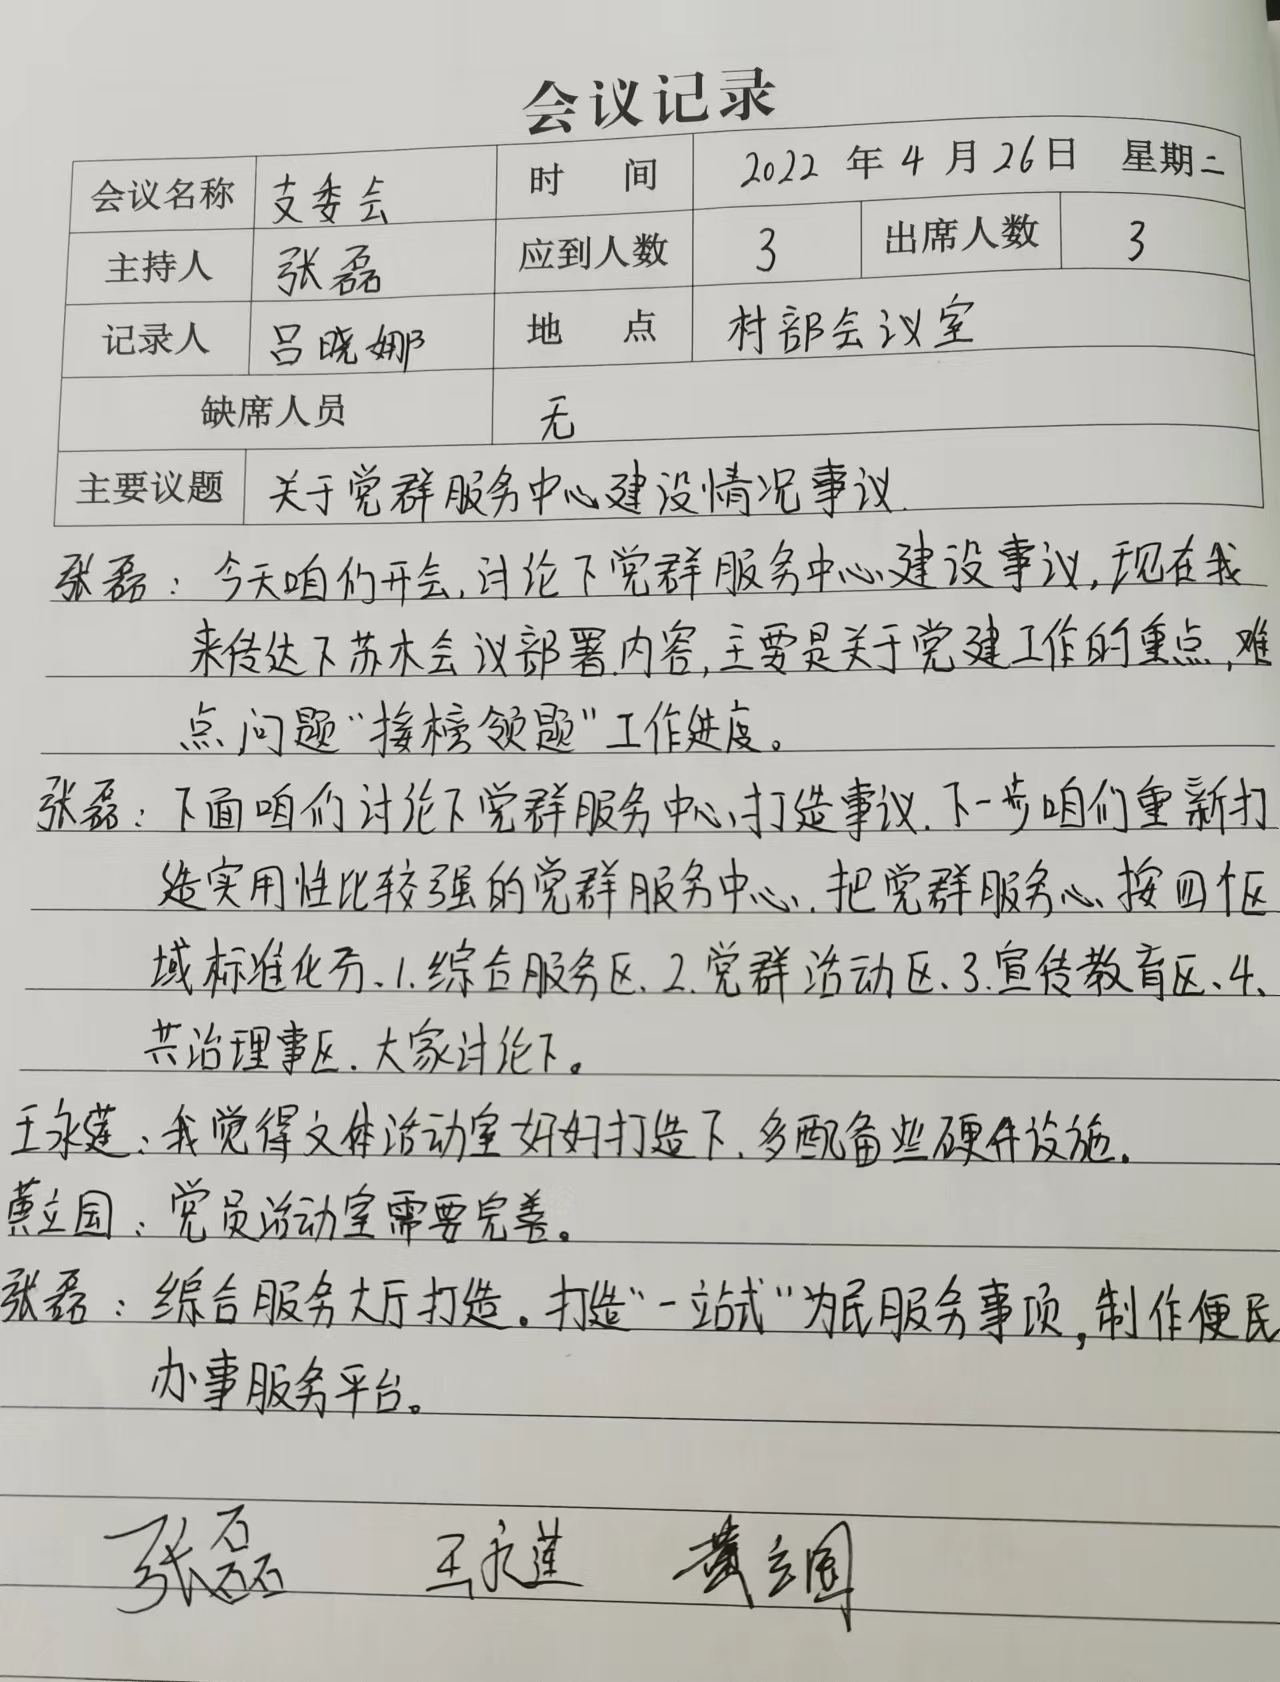 会议记录
会议名称 支委会 时间 2022年4月26日 星期二
主持人 张磊 应到人数 3 出席人数 3
记录人 吕晓娜 地点 村部会议室
缺席人员 无
主要议题 关于党群服务中心建设情况事议.
张磊：今天咱们开会,讨论下党群服务中心建设事议,现在我
来传达下苏木会议部署内容,主要是关于党建工作的重点,难
点问题“接榜领题”工作进度。
张磊：下面咱们讨论下党群服务中心打造事议.下一步咱们重新打
造实用性比较强的党群服务中心.把党群服务心、按四个区
域标准化分、1.综合服务区、2.党群活动区、3.宣传教育区、4、
共治理事区.大家讨论下。
王永莲：我觉得文体活动室好好打造下.多配备些硬件设施.
黄立国：党员活动室需要完善。
张磊：综合服务大厅打造。打造“一站式”为民服务事项,制作便民
办事服务平台。
张磊 王永莲 黄立国